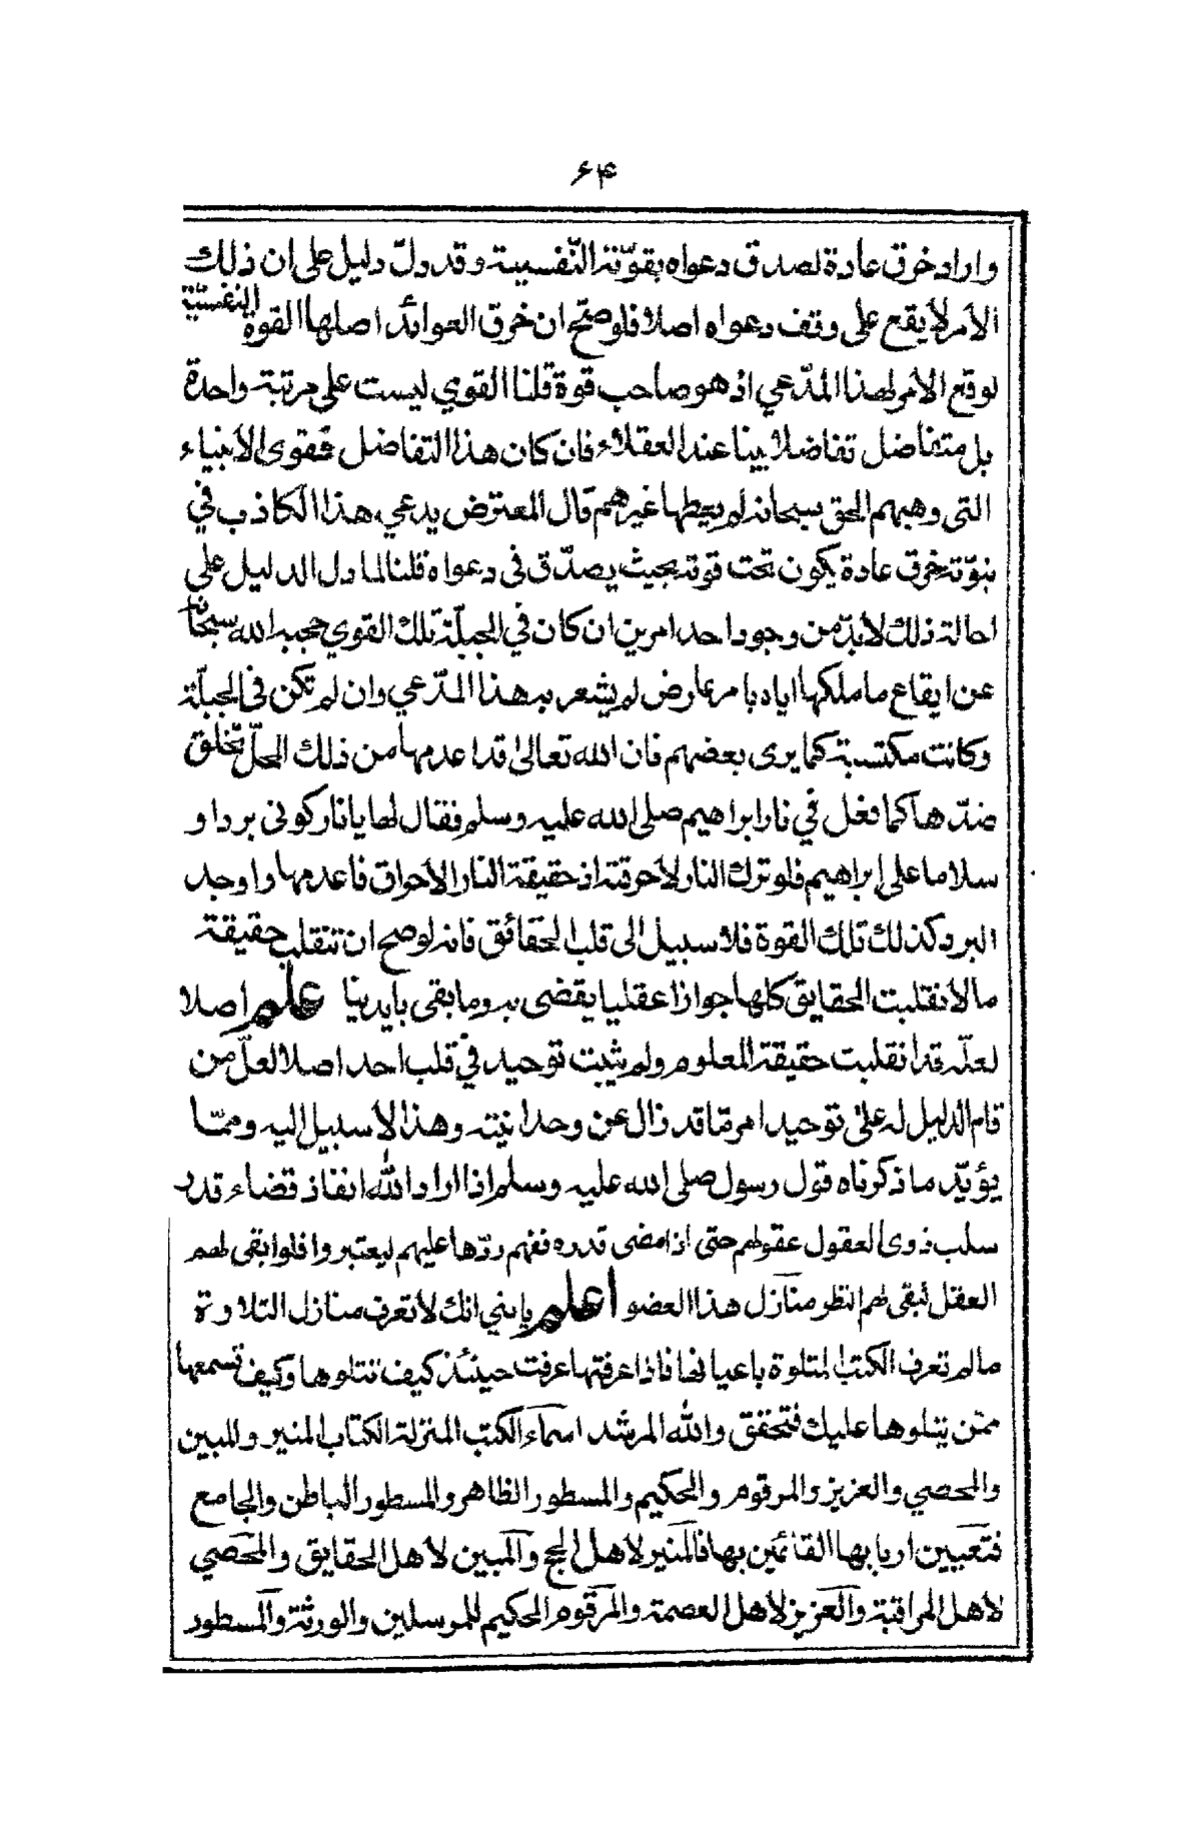 ۶۴
واراد خرق عادة لصدق دعواه بقوّته النّفسيته وقد دلّ دليل على ان ذلك
الأمر لأيقع على وقف دعواه اصلا فلو صحّ ان خرق العوائد اصلها القوة النفسيّة
لوقع الأمر لهذا المدّعي اذ هو صاحب قوة قلنا القوي ليست على مرتبة واحدة
بل متفاضل تفاضلا بينا عند العقلاء فان كان هذا التفاضل فقوى الأنبياء
التى وهبهم الحق سبحانه لم يعطها غيرهم قال المعترض يدعي هذا الكاذب في
نبوّته خرق عادة يكون تحت قوته بحيث يصدّق فى دعواه قلنا لما دل الدليل على
احالة ذلك لأبدّ من وجود احد امرين ان كان في الجبلّة تلك القوي حجبه الله سبحانه
عن ايقاع ما ملكها اياه بامر عارض لم يشعر به هذا المدّعي وان لم تكن فى الجبلّة
وكانت مكتسبة كما يرى بعضهم فان الله تعالى قد اعدمها من ذلك المحلّ بخلق
ضدّها كما فعل في نار ابراهيم صلى الله عليه وسلم فقال لها يا نار كونى بردا و
سلاما على إبراهيم فلو ترك النار لأحرقته اذ حقيقة النار الأحراق فاعدمها واوجد
البرد وكذلك تلك القوة فلا سبيل الى قلب الحقائق فانه لو صح ان تنقلب حقيقة
ما لأنقلبت الحقايق كلها جوازا عقليا يقضى به وما بقى بايدينا علم اصلا
لعلّه قد انقلبت حقيقة المعلوم ولم يثبت توحيد في قلب احد اصلا لعلّ من
قام الدليل له على توحيد امر مّا قد زال عن وحدانيته وهذا لأ سبيل إليه وممّا
يؤيّد ما ذكرناه قول رسول صلى الله عليه وسلم اذا اراد الله انفاذ قضاء قدر
سلب ذوى العقول عقولهم حتى اذا مضى قدره فيهم ردّها عليهم ليعتبروا فلو ابقى لهم
العقل لبقى لهم النظر منازل هذا العضو اعلم يا بني انك لأ تعرف منازل التلاوة
ما لم تعرف الكتب المتلوة باعيانها فاذا عرفتها عرفت حينئذ كيف تتلوها وكيف تسمعها
ممّن يتلوها عليك فتحقق والله المرشد اسماء الكتب المنزلة الكتاب المنير والمبين
والمحصي والعزيز والمرقوم والحكيم والمسطور الظاهر والمسطور الباطن والجامع
فتعيين اربابها القائمين بها فالمنير لأهل الحجج والمبين لأهل الحقايق والمحصي
لأهل المراقبة والعزيز لأهل العصمة والمرقوم الحكيم للمرسلين والورثة والمسطور